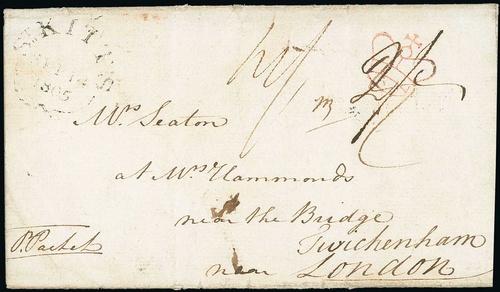 St KITTS
Mrs Seaton
at Mrs Hammonds
near the Bridge
P. Packet
Twickenham
near London